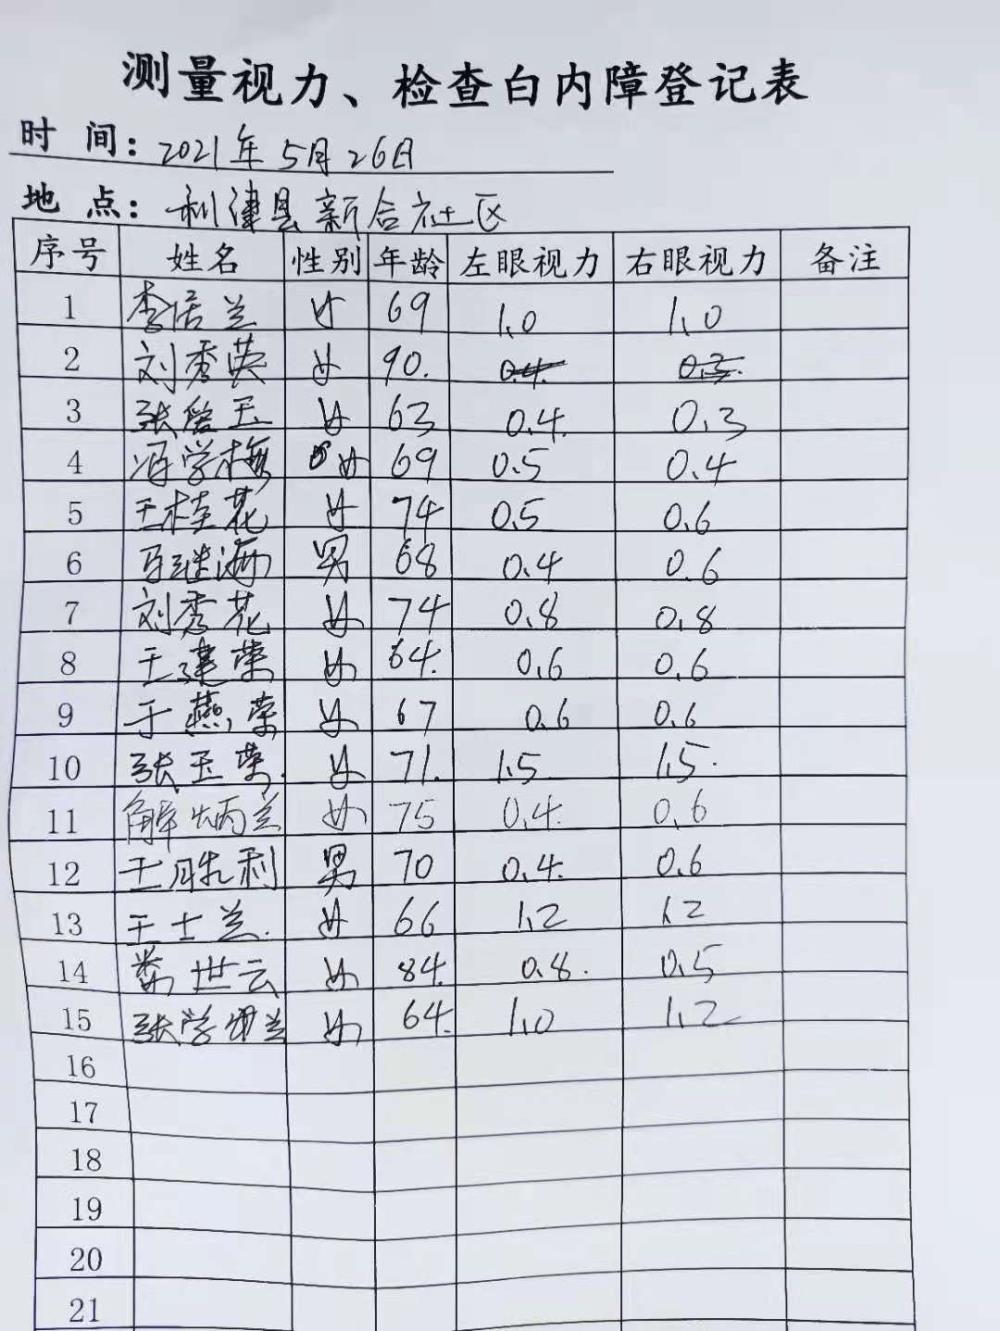 测量视力、检查白内障登记表
时 间: 2021年5月26日
地 点: 利津县新合社区
序号 姓名 性别 年龄 左眼视力 右眼视力 备注
1 李 兰 女 69 1.0 1.0
2 刘秀英 女 90.
3 张爱玉 女 63 0.4. 0.3
4 冯学梅 女 69 0.5 0.4
5 王桂花 女 74 0.5 0.6
6 马继海 男 68 0.4 0.6
7 刘秀花 女 74 0.8 0.8
8 王建荣 女 64. 0.6 0.6
9 于燕荣 女 67 0.6 0.6
10 张玉荣. 女 71. 1.5 1.5.
11 解炳兰 女 75 0.4. 0.6
12 王胜利 男 70 0.4. 0.6
13 王士兰. 女 66 1.2 1.2
14 世云 女 84. 0.8. 0.5
15 张学 兰 女 64. 1.0 1.2
16
17
18
19
20
21